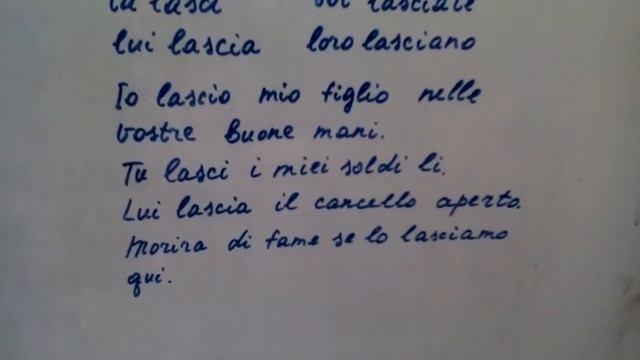 tu lasci voi lasciate
lui lascia loro lasciano
Io lascio mio figlio nelle
vostre Buone mani.
Tu lasci i miei soldi li.
Lui lascia il cancello aperto.
Morira di fame se lo lasciamo
qui.